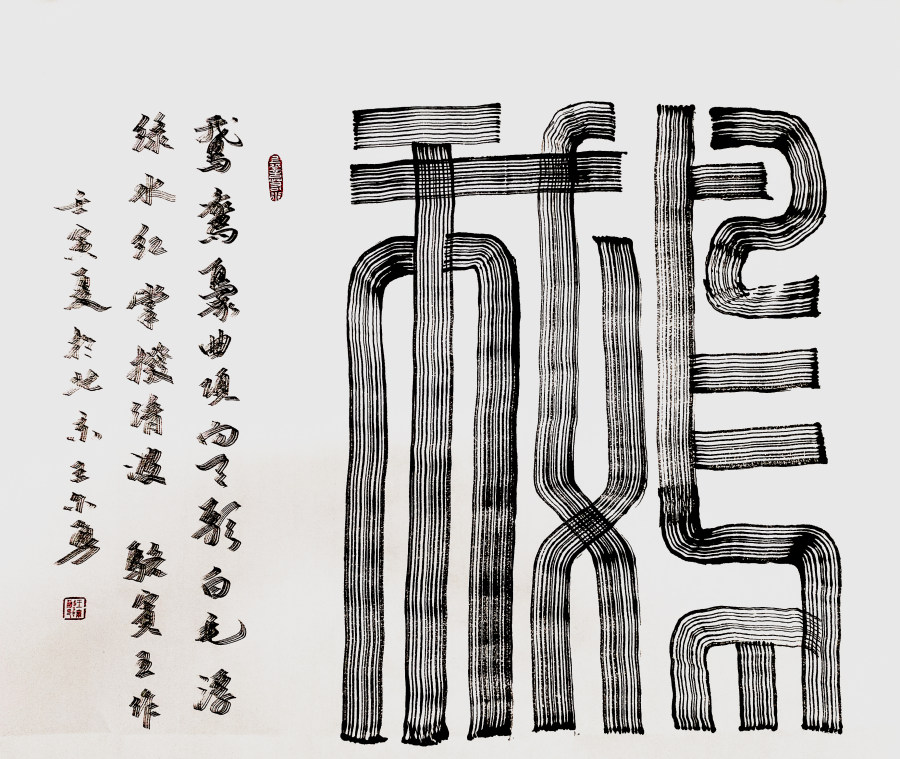 鵝
鵞鵞鵞曲項向天歌白毛浮
綠水紅掌撥清波 駱賓王作
壬寅夏於北京王